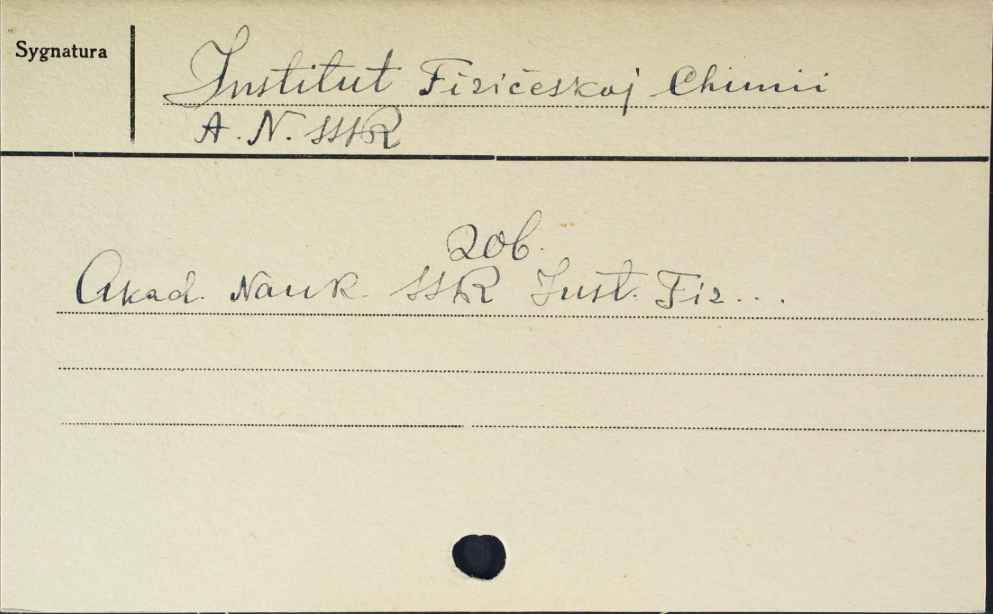 Sygnatura
Institut Fizičeskoj Chimii
A. N. SSSR
zob.
Akad. Nauk SSSR Inst. Fiz...